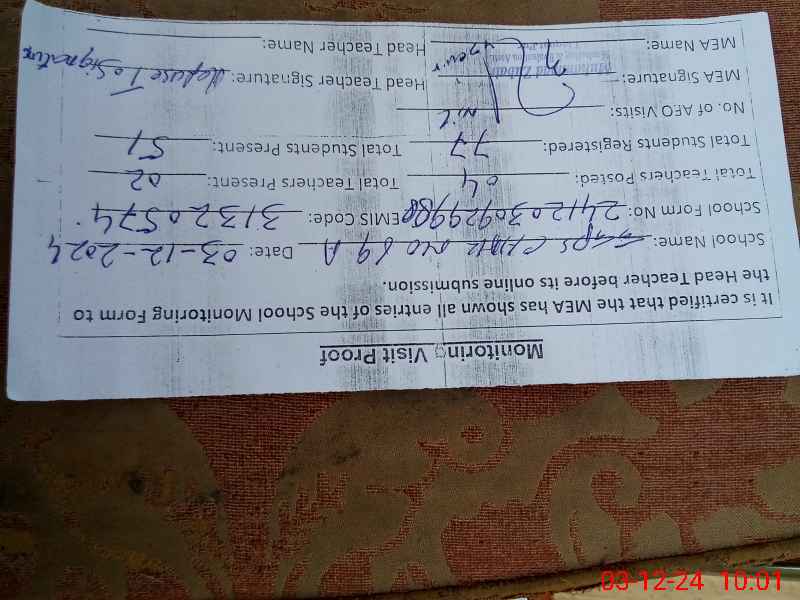 Monitoring Visit Proof
It is certified that the MEA has shown all entries of the School Monitoring Form to
the Head Teacher before its online submission.
School Name: GPS 69 A Date: 03-12-2024
School Form No: EMIS Code: 31320574
Total Teachers Posted: 04 Total Teachers Present: 02
Total Students Registered: 77 Total Students Present: 51
No. of AEO Visits: Nil
MEA Signature: Head Teacher Signature: Refuse To Signature
MEA Name: Head Teacher Name:
03-12-24 10:01